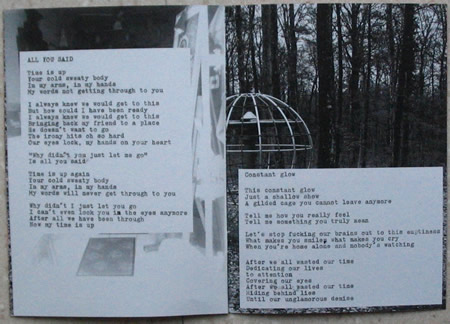 ALL YOU SAID
Time is up
Your cold sweaty body
In my arms, in my hands
My words not getting through to you
I always knew we would get to this
But how could I have been ready
I always knew we would get to this
Bringing back my friend to a place
He doesn't want to go
The irony hits oh so hard
Our eyes lock, my hands on your heart
"Why didn't you just let me go"
Is all you said
Time is up again
Your cold sweaty body
In my arms, in my hands
My words will never get through to you
Why didn't I just let you go
I can't even look you in the eyes anymore
After all we have been through
Now my time is up
Constant glow
This constant glow
Just a shallow show
A gilded cage you cannot leave anymore
Tell me how you really feel
Tell me something you truly mean
Let's stop fucking our brains out to this emptiness
What makes you smile, what makes you cry
When you're home alone and nobody's watching
After we all wasted our time
Dedicating our lives
to attention
Covering our eyes
After we all wasted our time
Hiding behind lies
Until our unglamorous demise